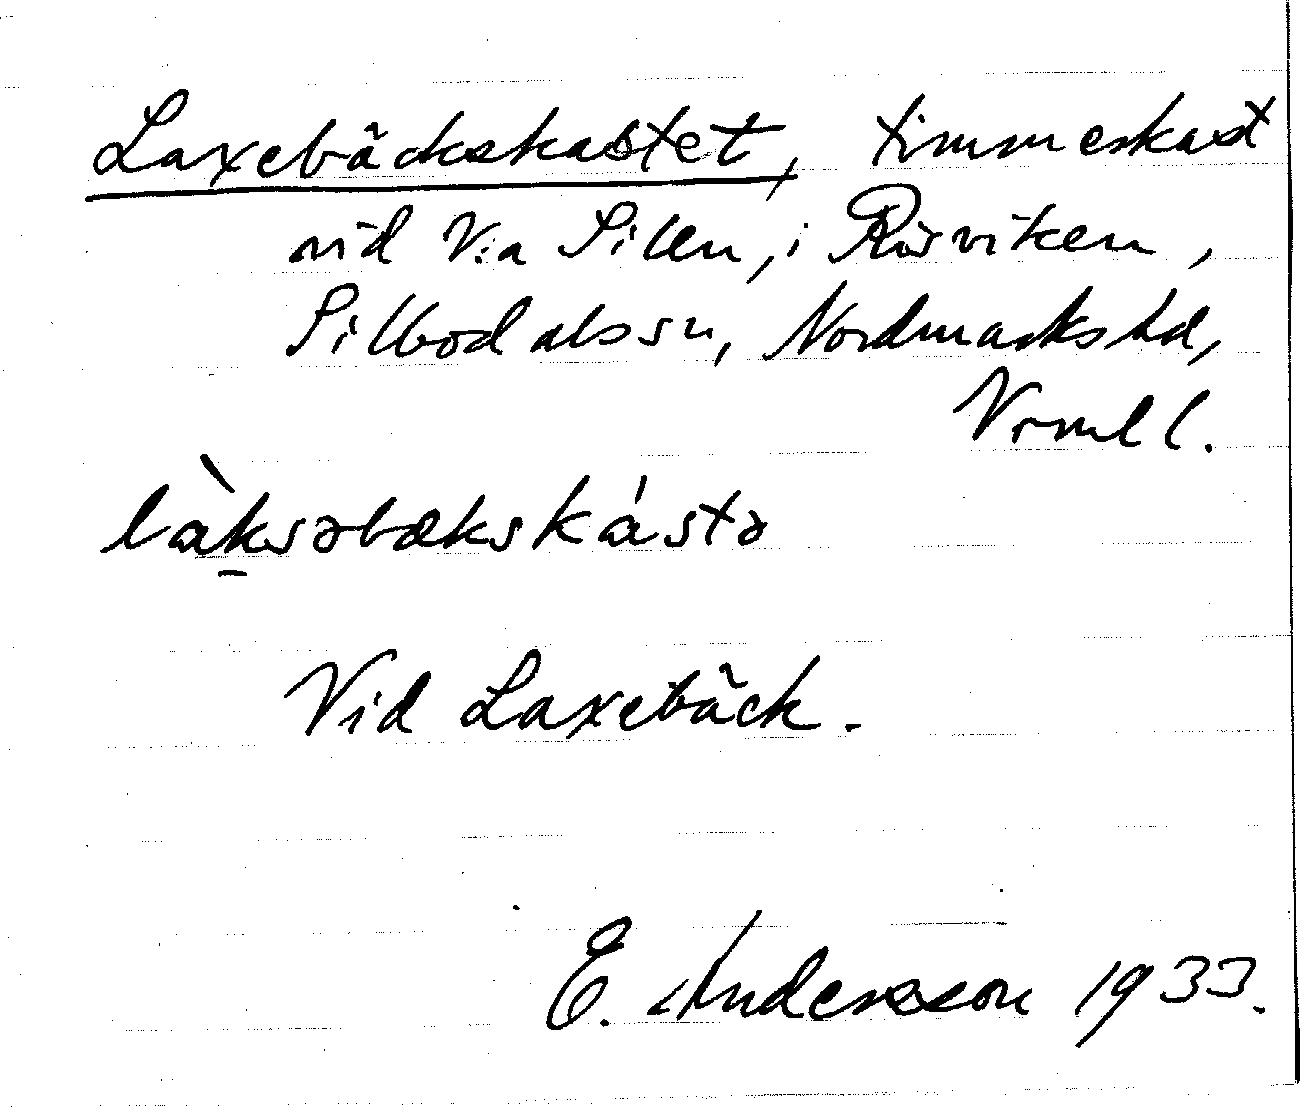 Laxebäckskastet, timmerkast
vid V:a Silen, i Rörviken,
Silbodals sn, Nordmarks hd,
Vrml l.
làksəbækskástə
Vid Laxebäck.
E. Andersson 1933.